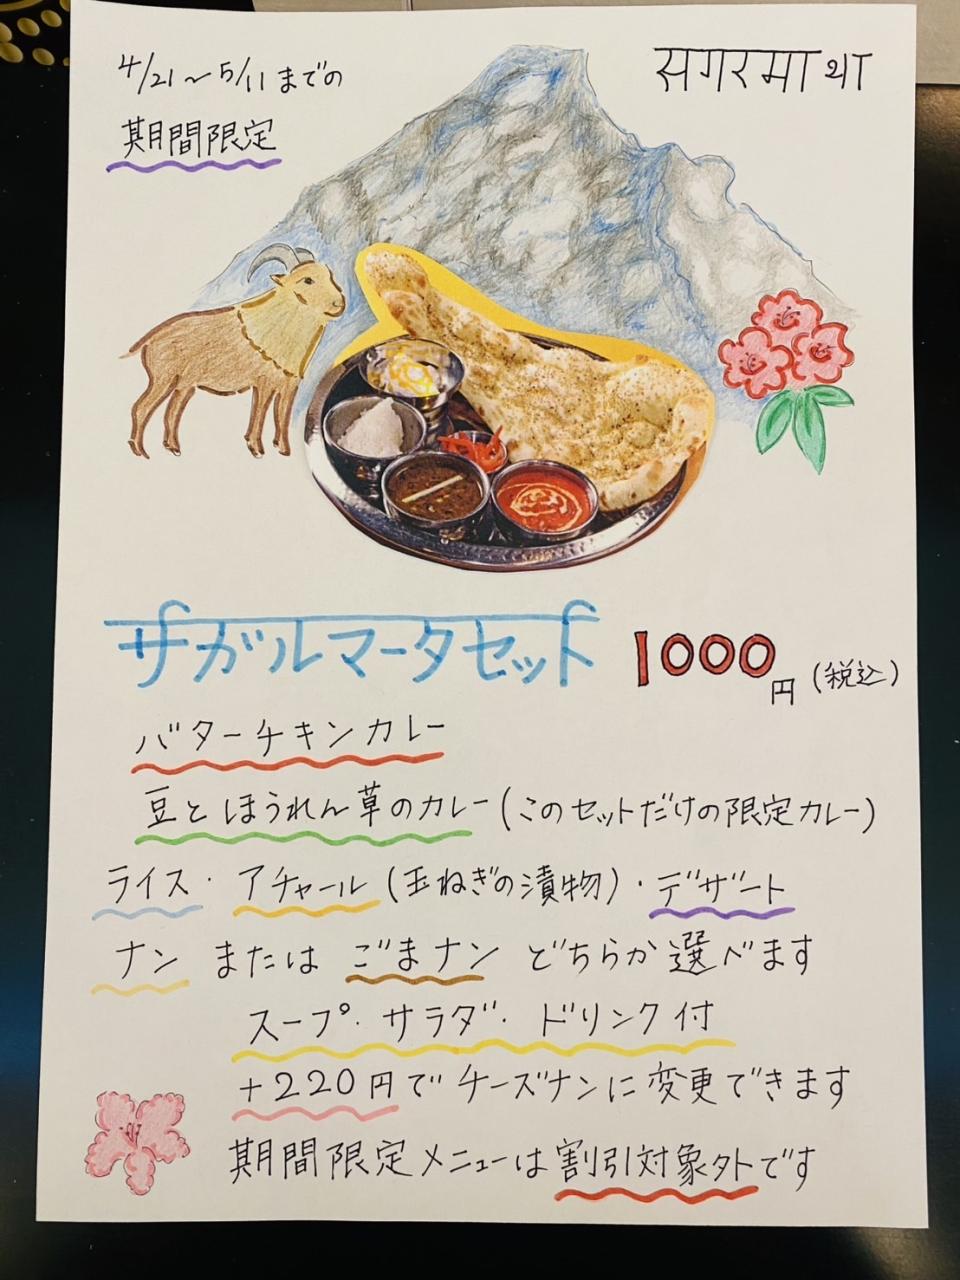 4/21〜5/11までの
期間限定
सगरमाथा
サガルマータセット 1000円(税込)
バターチキンカレー
豆とほうれん草のカレー(このセットだけの限定カレー)
ライス・アチャール(玉ねぎの漬物)・デザート
ナン または ごまナン どちらか選べます
スープ・サラダ・ドリンク付
+220円でチーズナンに変更できます
期間限定メニューは割引対象外です